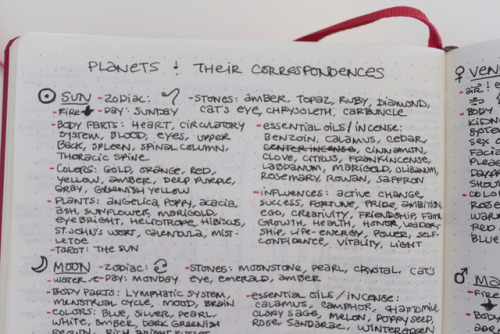 PLANETS & THEIR CORRESPONDENCES
☉ SUN - ZODIAC: ♌ - STONES: AMBER, TOPAZ, RUBY, DIAMOND,
- FIRE - DAY: SUNDAY CAT'S EYE, CHRYSOLETH, CARBUNCLE
- BODY PARTS: HEART, CIRCULATORY
SYSTEM, BLOOD, EYES, UPPER
BACK, SPLEEN, SPINAL COLUMN,
THORACIC SPINE
- COLORS: GOLD, ORANGE, RED,
YELLOW, AMBER, DEEP PURPLE,
GRAY, GREENISH YELLOW
- PLANTS: ANGELICA, POPPY, ACACIA,
ASH, SUNFLOWER, MARIGOLD,
EYEBRIGHT, HELIOTROPE, HIBISCUS,
ST. JOHN'S WORT, CALENDULA, MIST-
LETOE
- TAROT: THE SUN
- ESSENTIAL OILS / INCENSE:
BENZOIN, CALAMUS, CEDAR,
CINNAMON,
CLOVE, CITRUS, FRANKINCENSE,
LABDANUM, MARIGOLD, OLIBANUM,
ROSEMARY, ROWAN, SAFFRON
- INFLUENCES: ACTIVE CHANGE,
SUCCESS, FORTUNE, PRIDE, AMBITION,
EGO, CREATIVITY, FRIENDSHIP, FAME,
GROWTH, HEALTH, HONOR, LEADER-
SHIP, LIFE-ENERGY, POWER, SELF-
CONFIDENCE, VITALITY, LIGHT
☾ MOON - ZODIAC: ♋ - STONES: MOONSTONE, PEARL, CRYSTAL, CAT'S
- WATER - DAY: MONDAY EYE, EMERALD, AMBER
- BODY PARTS: LYMPHATIC SYSTEM,
MENSTRUAL CYCLE, MOOD, BRAIN
- COLORS: BLUE, SILVER, PEARL,
WHITE, AMBER, DARK GREENISH
- ESSENTIAL OILS / INCENSE:
CALAMUS, CAMPHOR, CHAMOMILE,
CLARY SAGE, MELON, POPPY SEED,
ROSE, SANDARAC, WINTERGREEN
♀ VEN
- BODY
KIDN
SYSTE
SEX O
FACIA
PLEA
- COLO
ROSE
WAR
RED
BLUE
♂ MA
- FIRE
- BODY